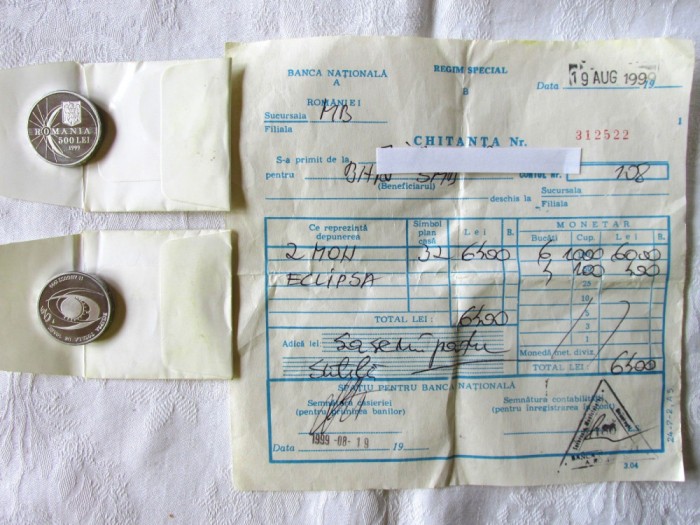 ROMANIA
500 LEI
1999
11 AUGUST 1999
BANCA NAȚIONALĂ
A
ROMÂNIEI
REGIM SPECIAL
Data 19 AUG 1999 19
Sucursala MB
Filiala
1
CHITANȚA Nr. 312522
S-a primit de la
pentru
(Beneficiarul)
CONTUL NR. 108
deschis la Sucursala
Filiala
Ce reprezintă depunerea
Simbol plan casă
Lei
B.
MONETAR
Bucăți Cup. Lei B.
2 MON 32 6400 6 1000 6000
ECLIPSA 4 100 400
25
10
5
3
1
TOTAL LEI: 6400
Adică lei: Sase mii patru
sute
Monedă met. diviz.
TOTAL LEI: 6400
SPAȚIU PENTRU BANCA NAȚIONALĂ
Semnătura casieriei
(pentru primirea banilor)
Semnătura contabilității
(pentru înregistrarea în cont)
Data 1999 -08- 19 19
2.04